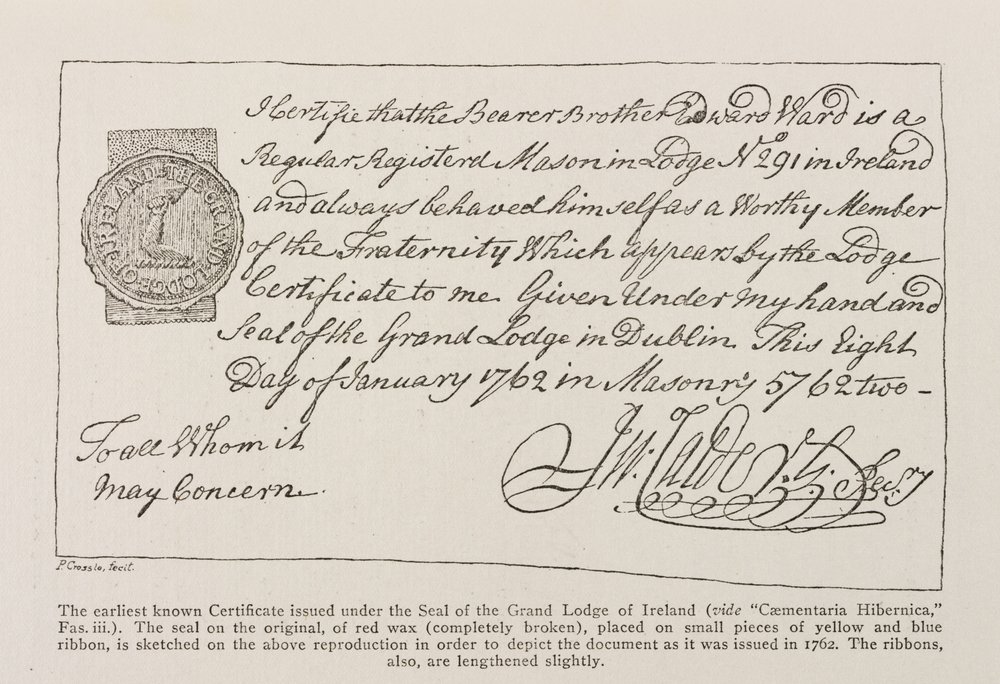 I Certifie that the Bearer Brother Edward Ward is a
Regular Registerd Mason in Lodge No 291 in Ireland
and always behaved himself as a Worthy Member
of the Fraternity Which appears by the Lodge
Certificate to me. Given Under my hand and
Seal of the Grand Lodge in Dublin. This Eight
Day of January 1762 in Masonry 5762 two -
To all Whom it
May Concern.
Jn: Calder. D.G. Secry
THE GRAND LODGE OF IRELAND
P. Crossle, fecit.
The earliest known Certificate issued under the Seal of the Grand Lodge of Ireland (vide "Cæmentaria Hibernica,"
Fas. iii.). The seal on the original, of red wax (completely broken), placed on small pieces of yellow and blue
ribbon, is sketched on the above reproduction in order to depict the document as it was issued in 1762. The ribbons,
also, are lengthened slightly.